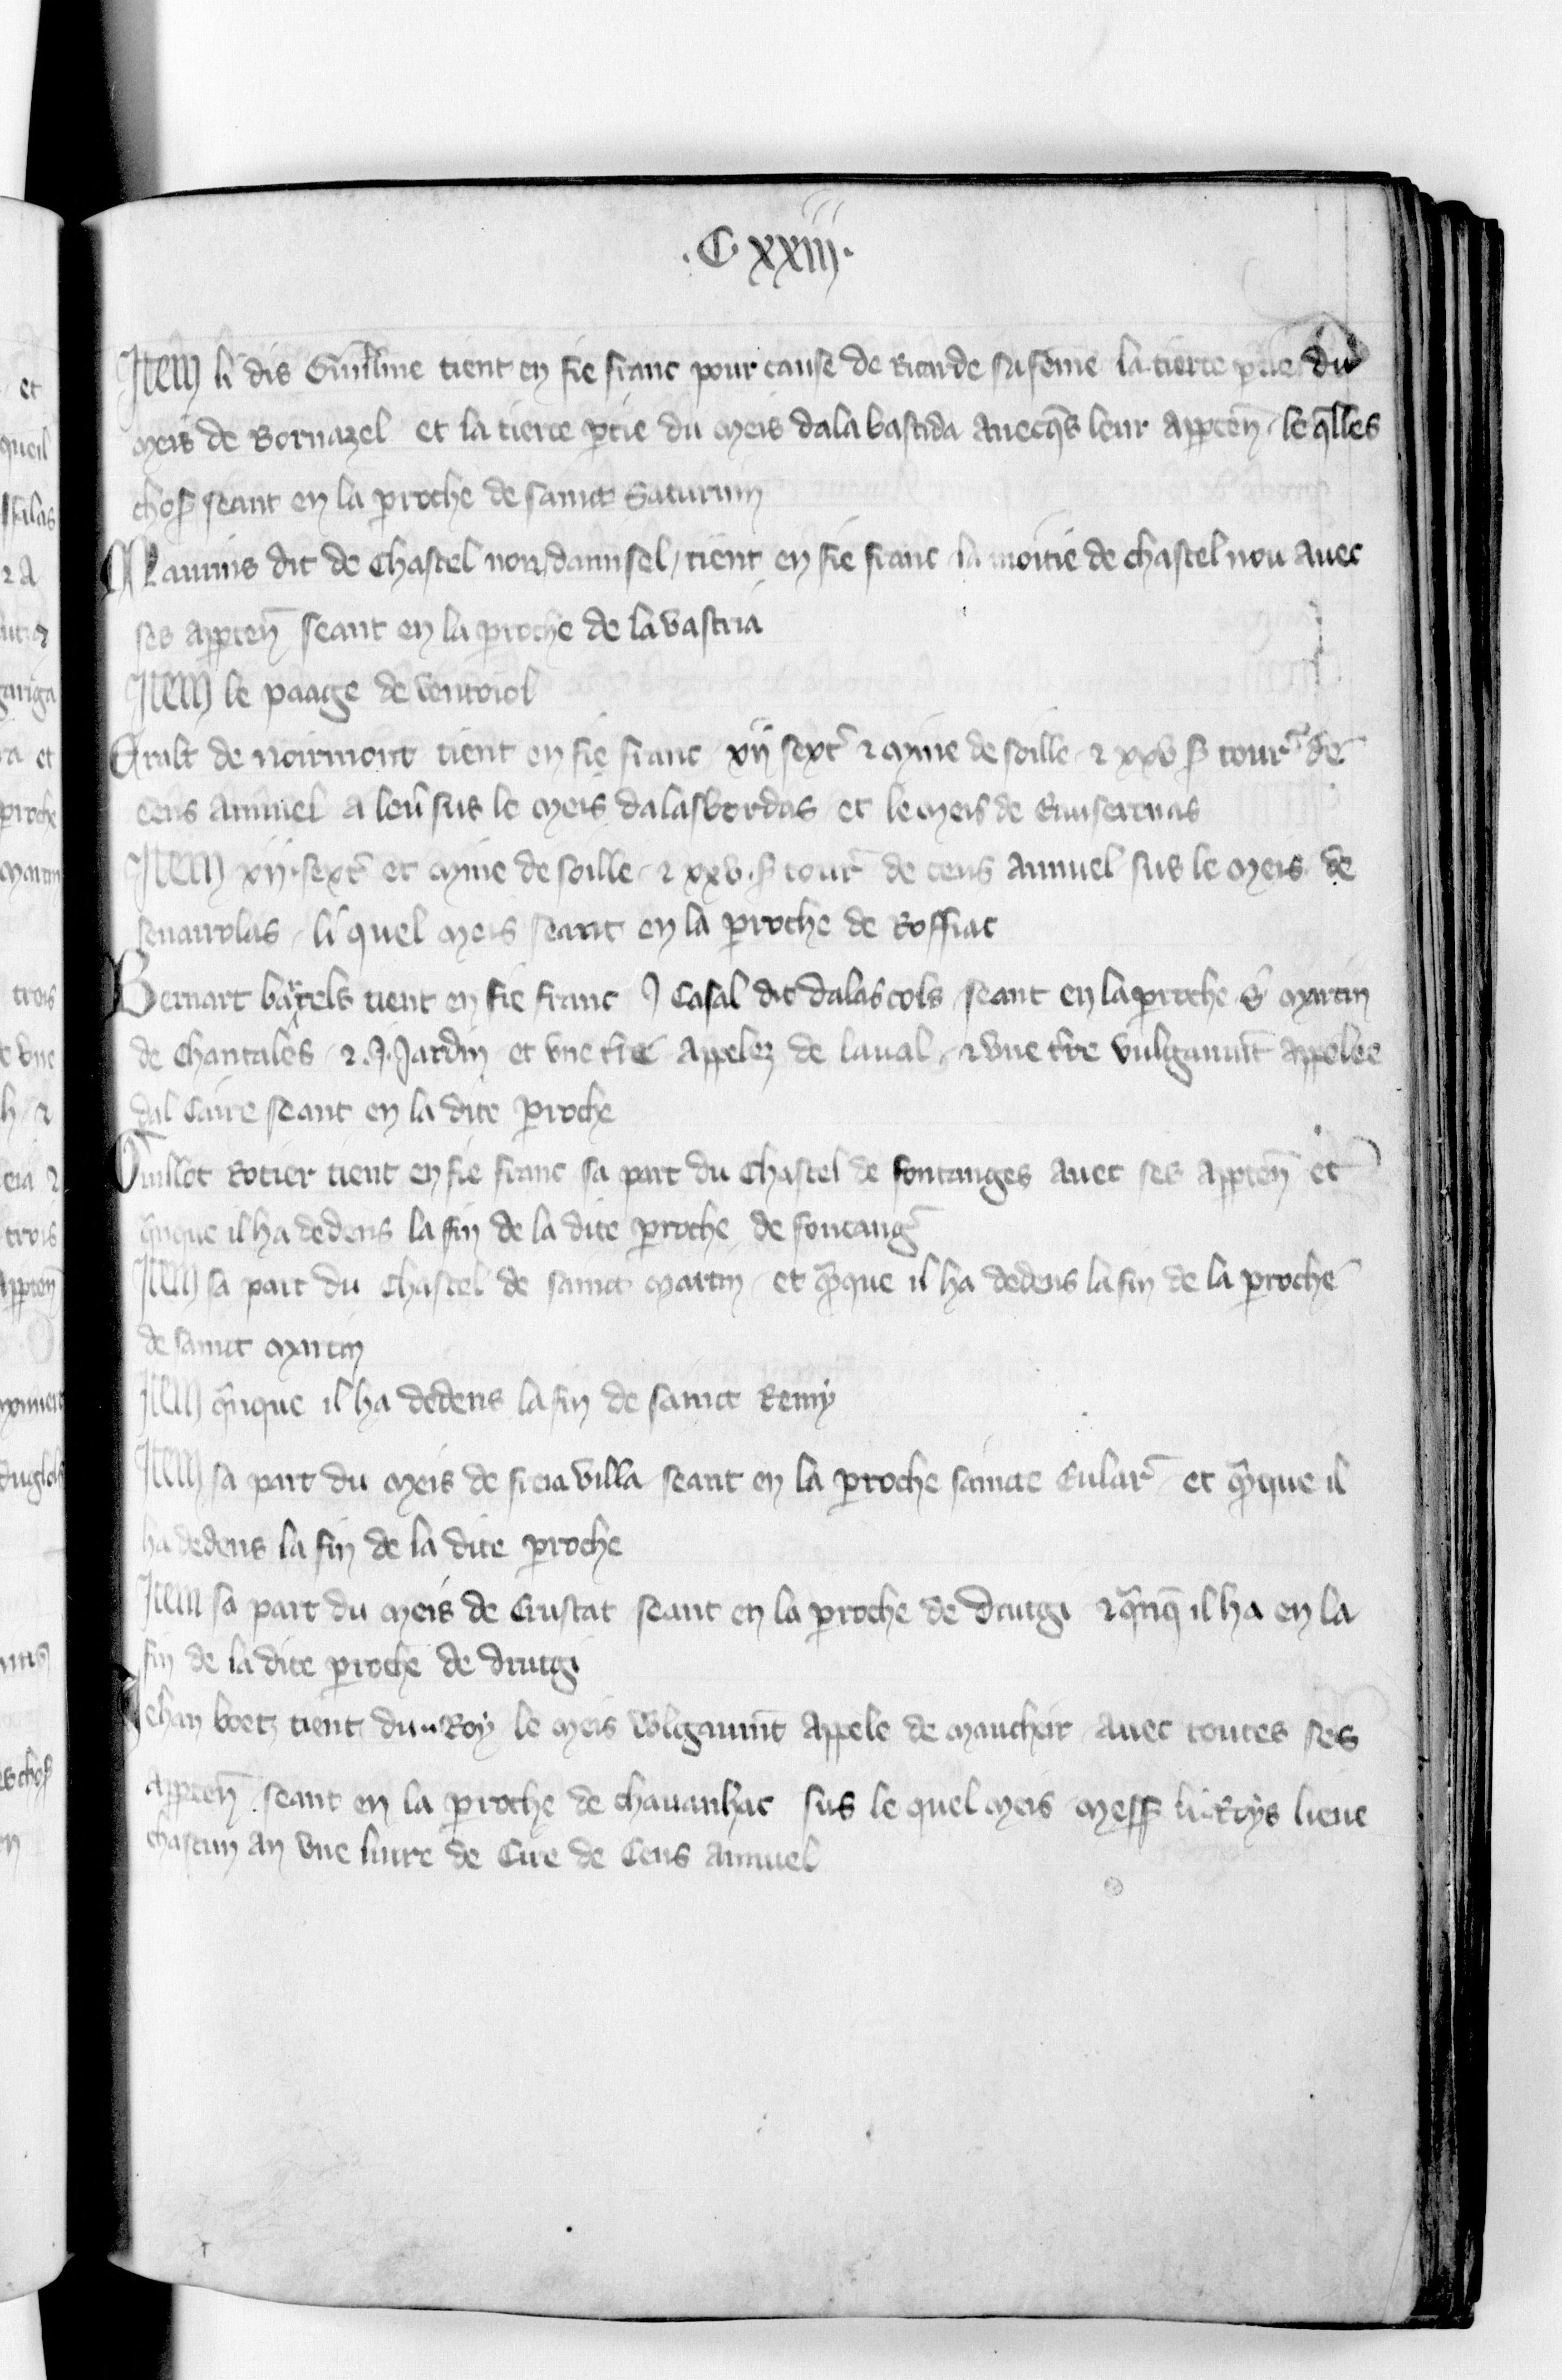 .C. xxiij.
Item li dis Guillme tient en fie franc pour cause de Ricarde sa feme la tierce ptie du
meis de Bornazel et la tierce ptie du meis dalabastida auecqs leur appten / leqlles
chos seant en la proche de sainct Saturnin
dit de Chastel nou damisel / tient en fie franc la moitie de chastel nou auec
ses appten seant en la proche de la Vastria
Item le paage de ventoiol
de noirmont tient en fie franc xij sext ⁊ myne de soille ⁊ xxv s tour de
cens annuel a leu sus le meis dalasbordas et le meis de
Item xij. sext et myne de soille ⁊ xxv. s tour de cens annuel sus le meis de
senairolas / li quel meis seant en la proche de Roffiac
Bernart tient en fie franc J Casal dit dalascols seant en la proche S martin
de Chantales ⁊ .J. Jardin et vne tre appelez de laual ⁊ vne tre vulgaumt appelee
dal Caire seant en la dite proche
Guillot Rotier tient en fie franc sa part du Chastel de fontanges auec ses apptens et
qnque il ha dedens la fin de la dite proche de fontang
Item sa part du Chastel de sainct martin et qnque il ha dedens la fin de la proche
de sainct martin
Item qnque il ha dedens la fin de sainct Remy
Item sa part du meis de freia villa seant en la proche saincte Eular et qnque il
ha dedens la fin de la dite proche
Item sa part du meis de Crustat seant en la proche de drutgi ⁊ qnq il ha en la
fin de la dite proche de drutgi
Jehan boetz tient du Roy le meis volgaumt appele de maucher auec toutes ses
apptens seant en la proche de chauanhac sus le quel meis mess li Roys lieue
chascun an vne liure de Cire de Cens annuel